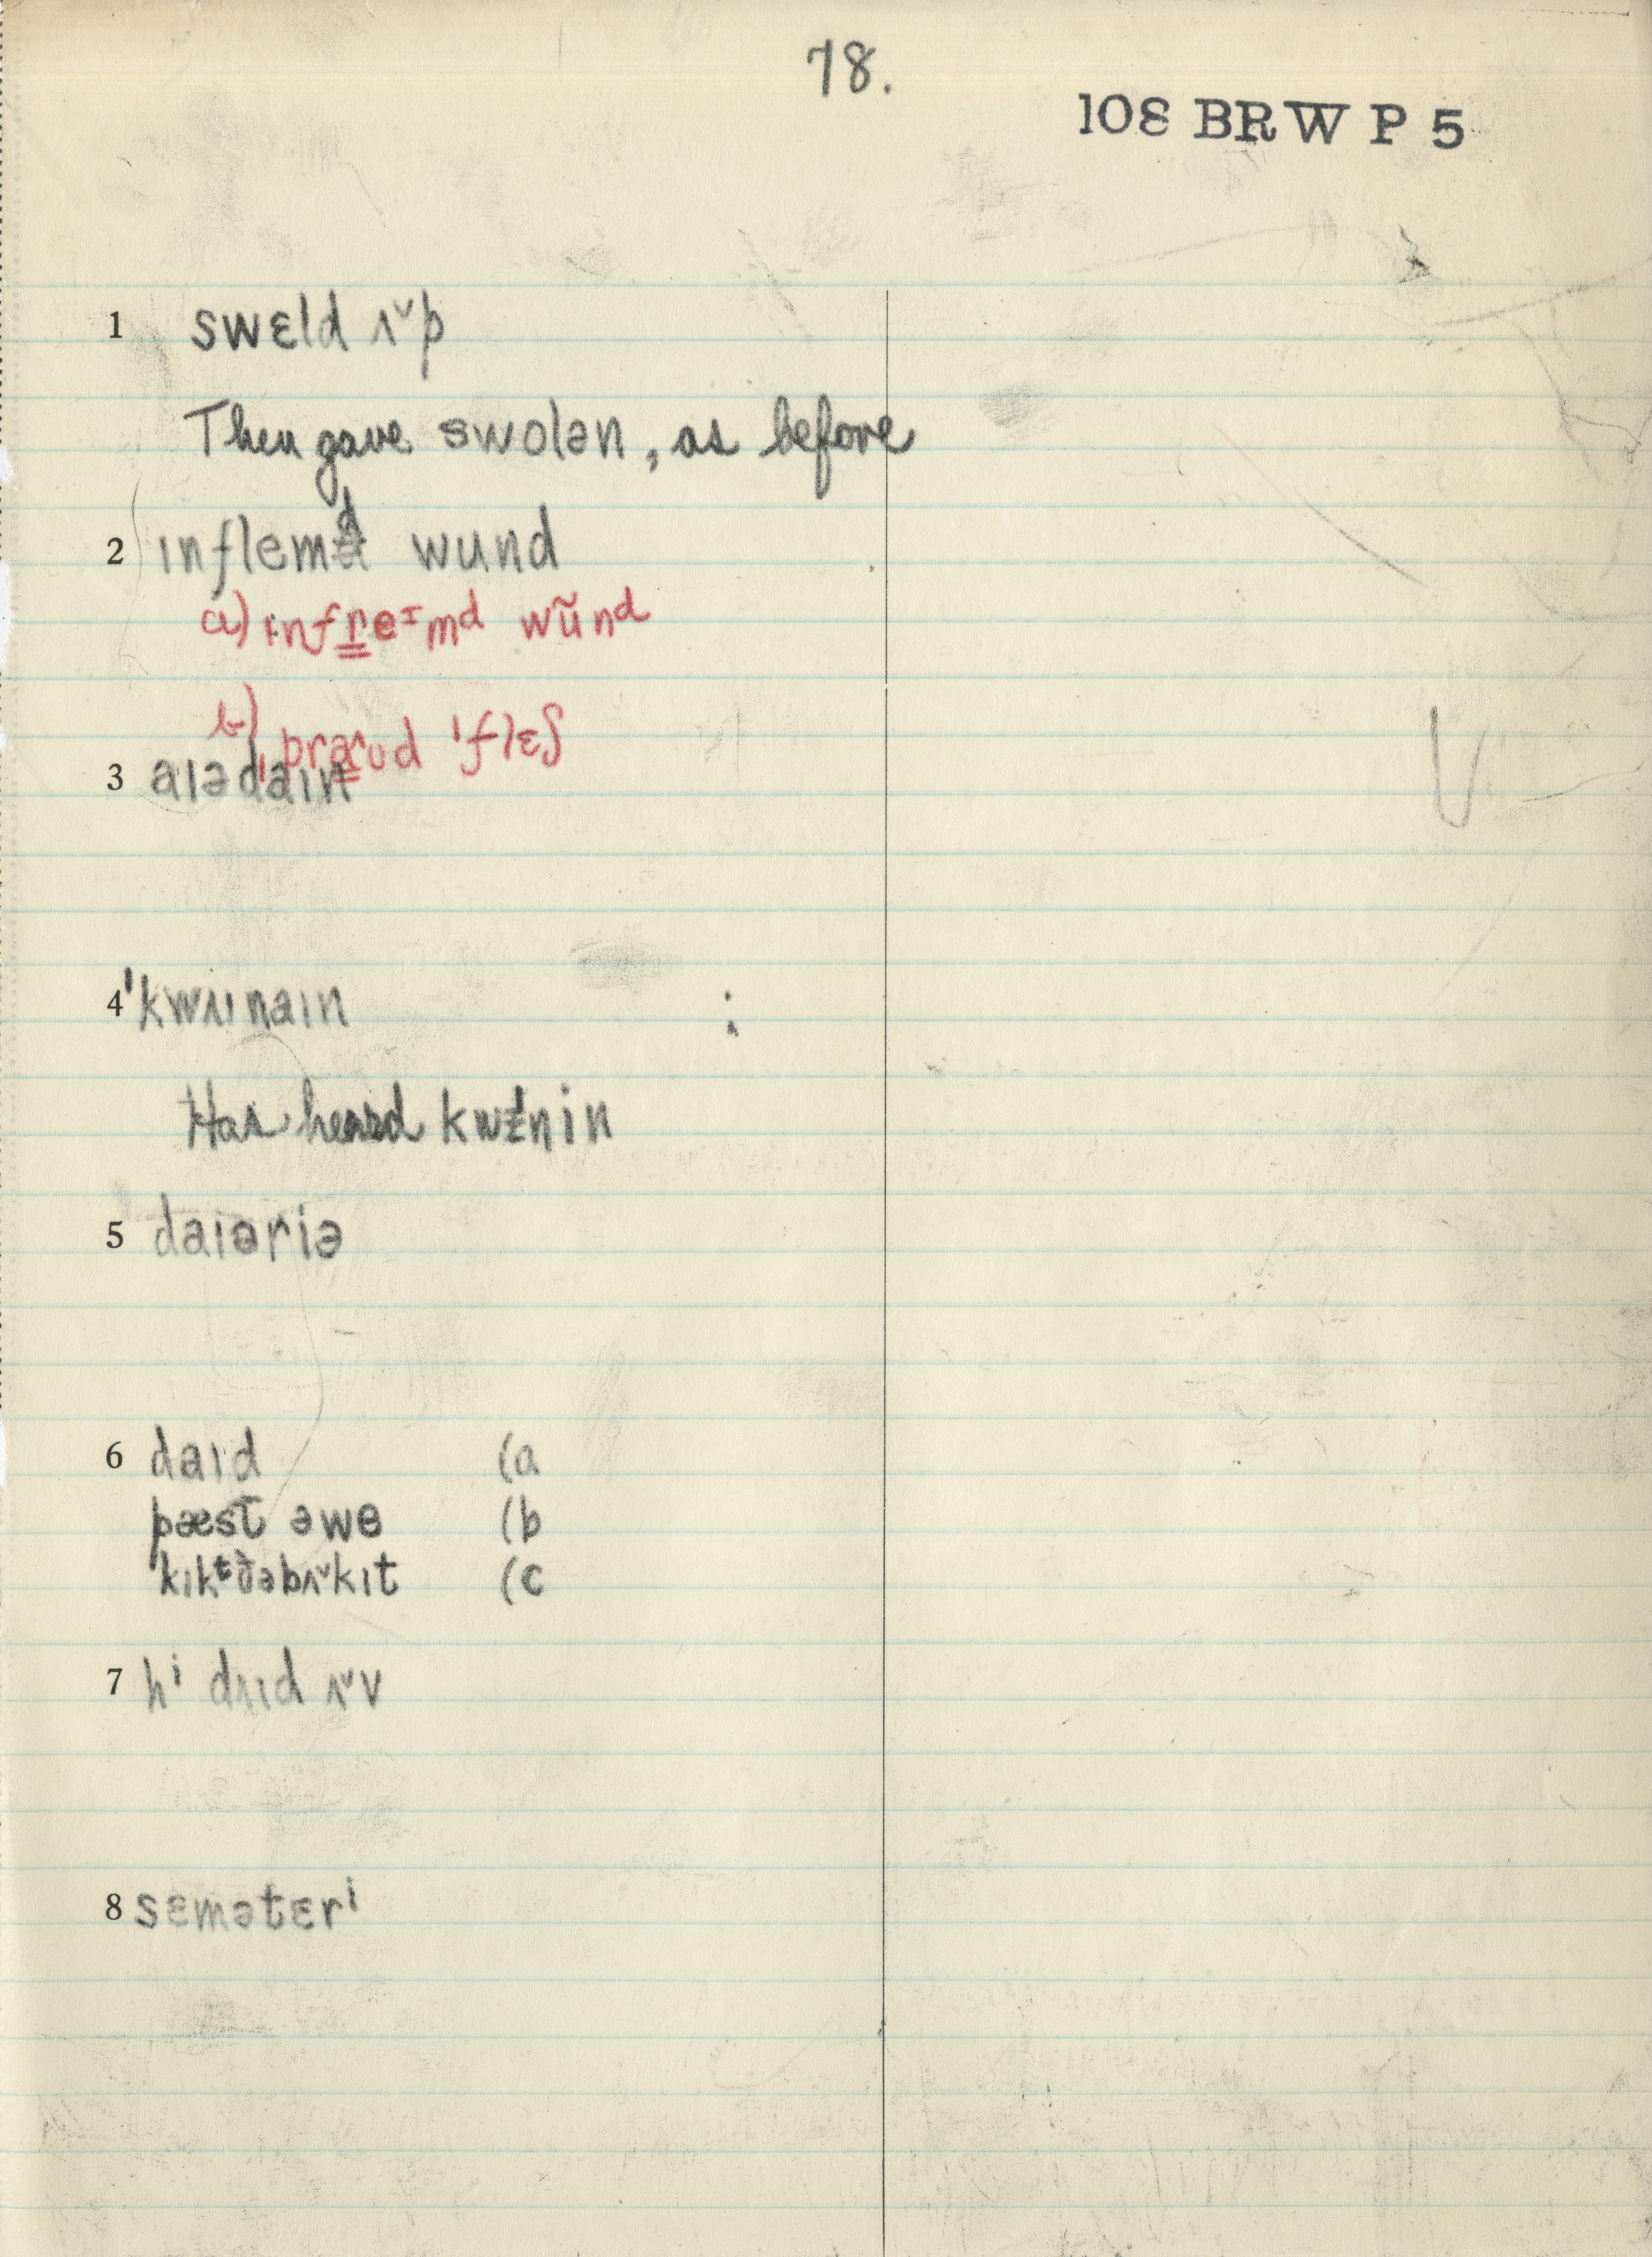 78.
108 BRW P 5
1 swɛld ʌ˅p
Then gave swolən, as before
2 ɪnflemd wund
a) ɪnfre‍ᶦmᵈ wũnᵈ
b) ˌpraʊd ˈflɛʃ
3 aɪədaɪn
4 ˈkwʌɪnaɪn
Has heard kwɪnin
5 daɪəriə
6 daɪd (a
pæst əwe (b
ˈkɪkᵗðəbʌ˅kɪt (c
7 hⁱ dʌɪd ʌ˅v
8 sɛmətɛrⁱ